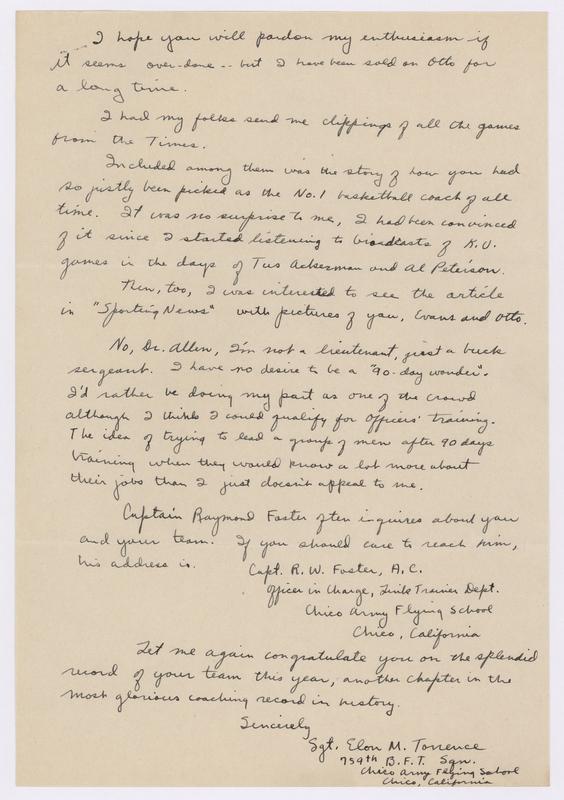 I hope you will pardon my enthusiasm if
it seems over-done -- but I have been sold on Otto for
a long time.
I had my folks send me clippings of all the games
from the Times.
Included among them was the story of how you had
so justly been picked as the No. 1 basketball coach of all
time. It was no surprise to me, I had been convinced
of it since I started listening to broadcasts of K.U.
games in the days of Tus Ackerman and Al Peterson.
Then, too, I was interested to see the article
in "Sporting News" with pictures of you, Evans and Otto.
No, Dr. Allen, I'm not a lieutenant, just a buck
sergeant. I have no desire to be a "90-day wonder".
I'd rather be doing my part as one of the crowd
although I think I could qualify for Officers' training.
The idea of trying to lead a group of men after 90 days
training when they would know a lot more about
their jobs than I just doesn't appeal to me.
Captain Raymond Foster often inquires about you
and your team. If you should care to reach him,
his address is.
Capt. R.W. Foster, A.C.
Officer in Charge, Link Trainer Dept.
Chico Army Flying School
Chico, California
Let me again congratulate you on the splendid
record of your team this year, another chapter in the
most glorious coaching record in history.
Sincerely
Sgt. Elon M. Torrence
759th B.F.T. Sqn.
Chico Army Flying School
Chico, California